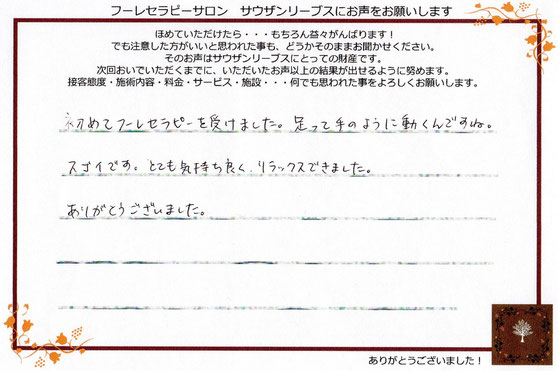 フーレセラピーサロン　サウザンリーブスにお声をお願いします
ほめていただけたら・・・もちろん益々がんばります！
でも注意した方がいいと思われた事も、どうかそのままお聞かせください。
そのお声はサウザンリーブスにとっての財産です。
次回おいでいただくまでに、いただいたお声以上の結果が出せるように努めます。
接客態度・施術内容・料金・サービス・施設・・・何でも思われた事をよろしくお願いします。
初めてフーレセラピーを受けました。足って手のように動くんですね。
スゴイです。とても気持ち良く、リラックスできました。
ありがとうございました。
ありがとうございました！